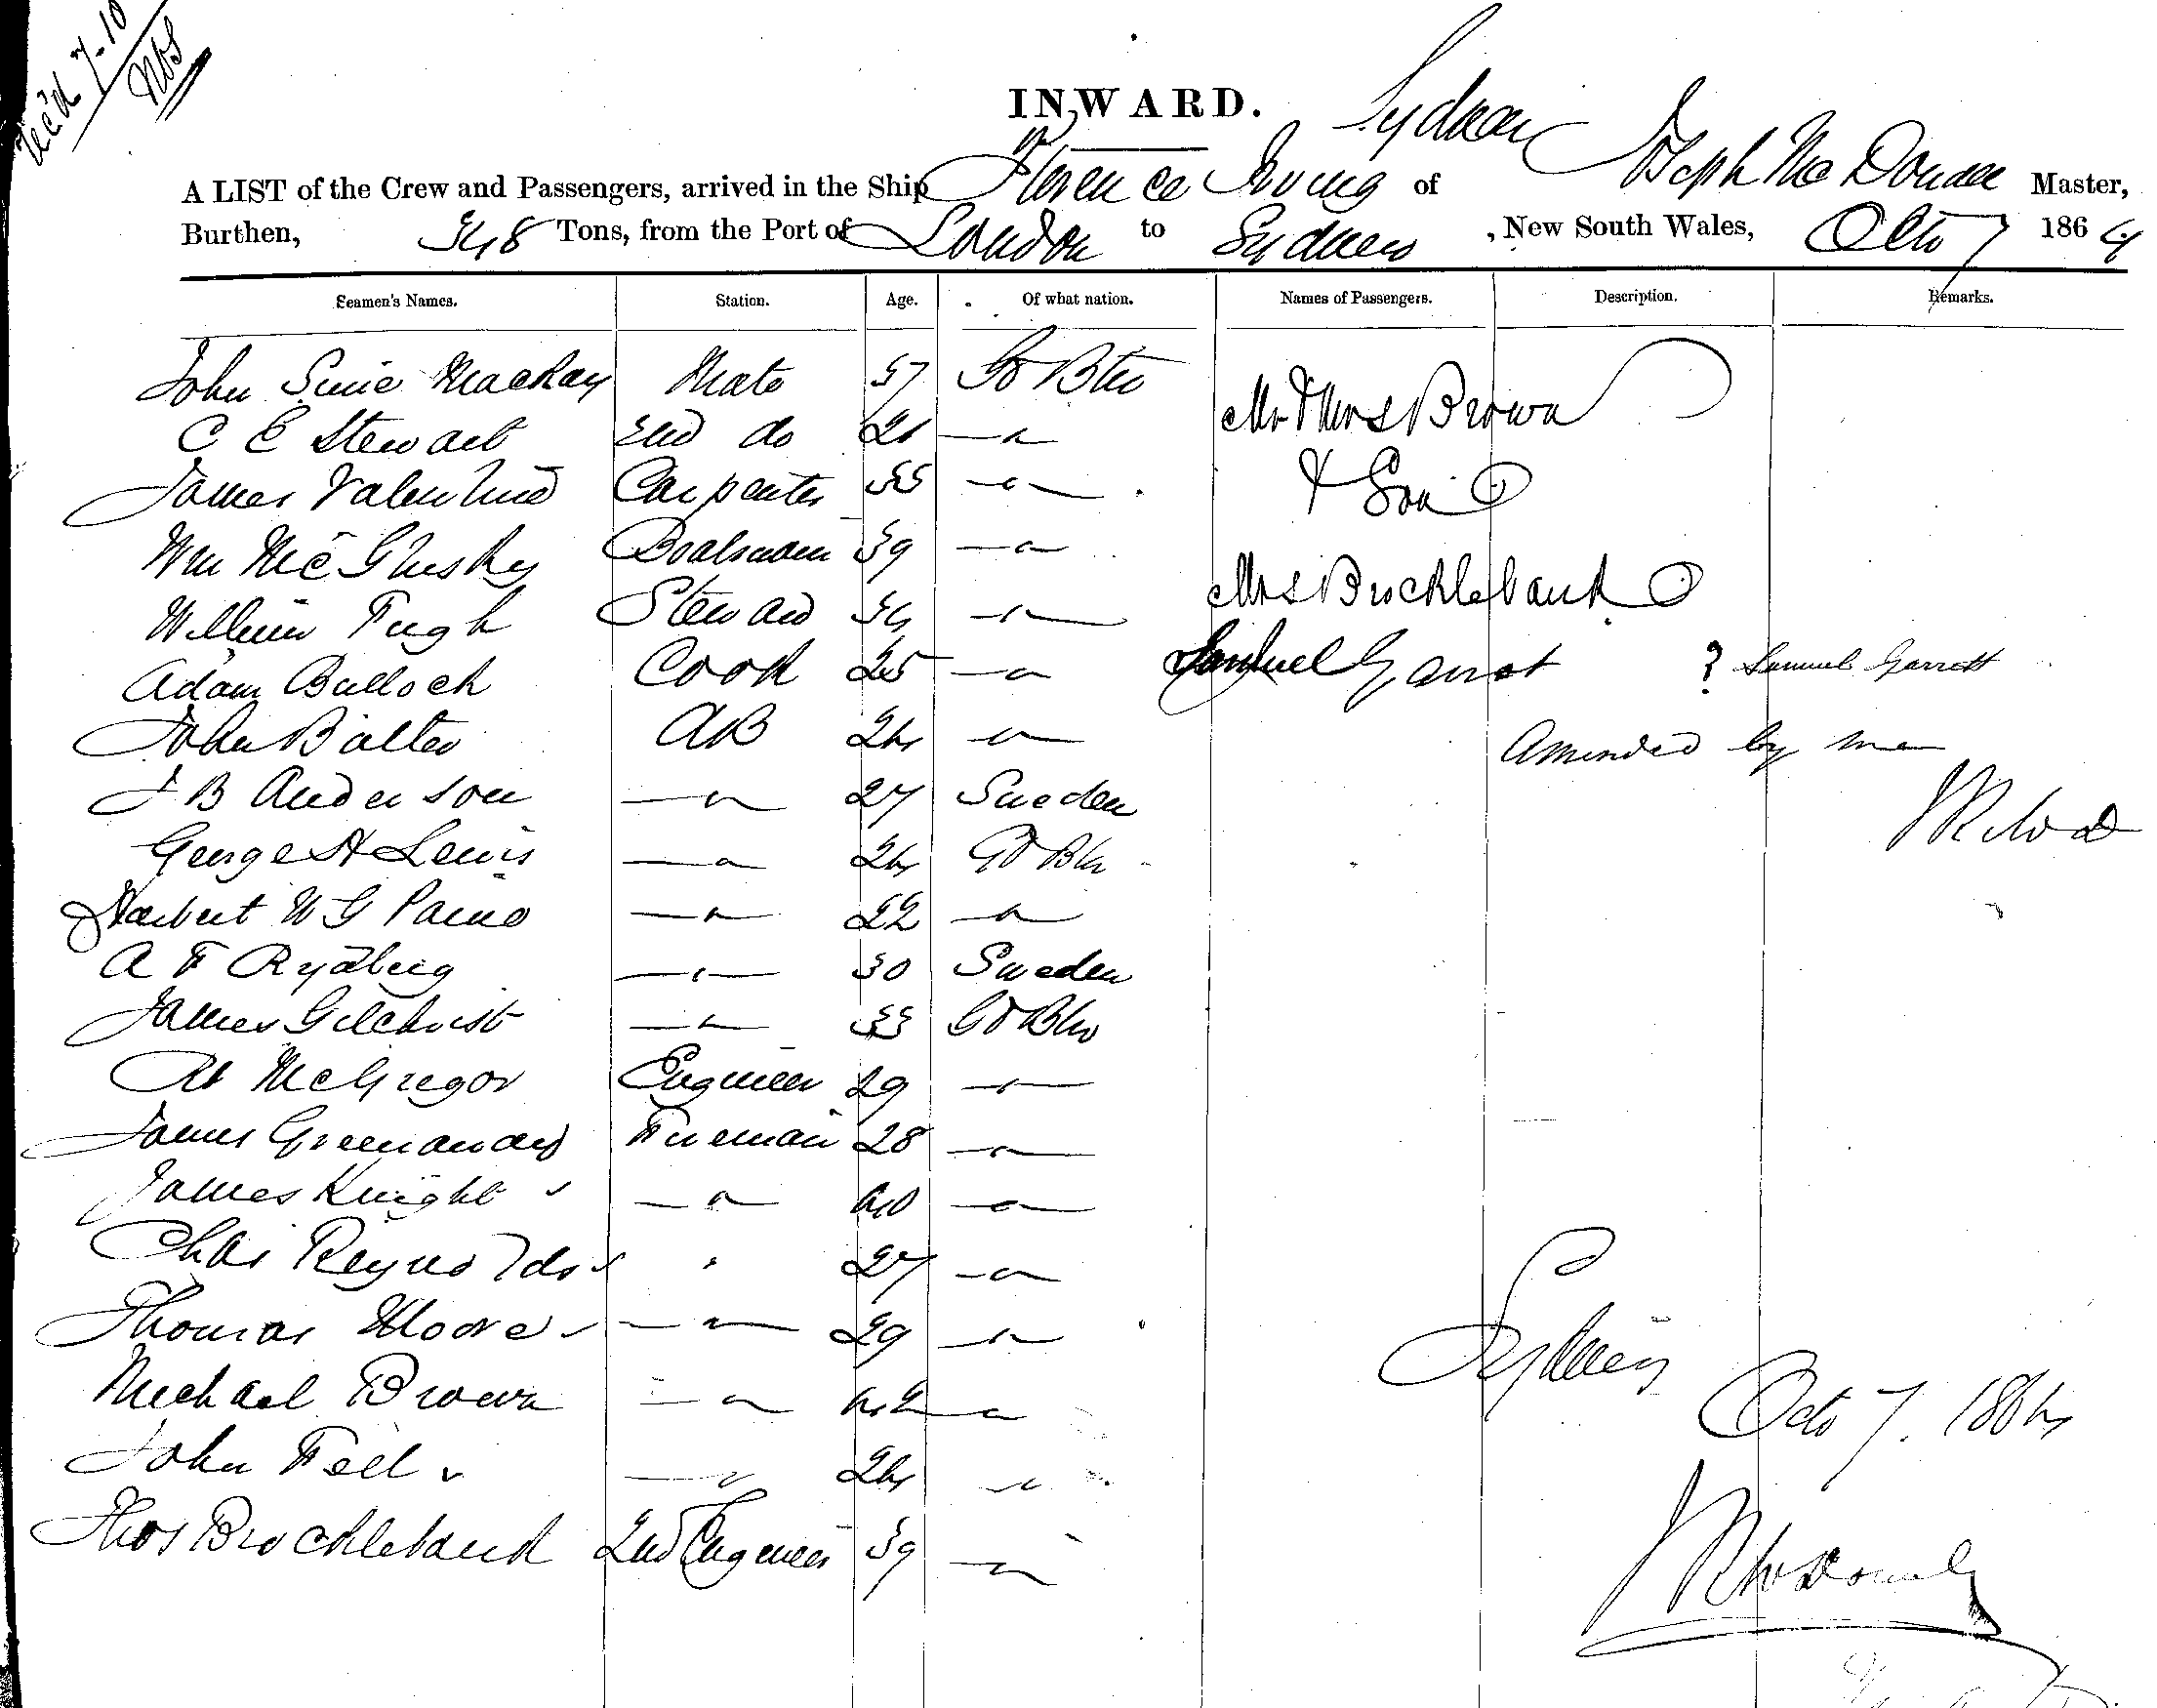 Rec'd 7-10
INWARD.
A LIST of the Crew and Passengers, arrived in the Ship Florence Irving of Sydney Joseph McDonald Master,
Burthen, 348 Tons, from the Port of London to Sydney , New South Wales, Octo 7 1864
Seamen's Names. Station. Age. Of what nation. Names of Passengers. Description. Remarks.
John Mackay Mate 37 Gt Btn Mr & Mrs Brown
C E Stewart 2nd do 21 —"—
James Valentine Carpenter 35 —"— & Son
Wm McGlusky Boatswain 39 —"—
William Pugh Steward 34 —"— Mrs Brocklebank
Adam Bulloch Cook 25 —"— Samuel Garrot ? Samuel Garrett
John AB 24 —"— Amended by me
J B Anderson —"— 27 Sweden
George H Lewis —"— 24 Gt Btn
Herbert W G Paine —"— 22 —"—
A F Rydberg —"— 30 Sweden
James Gilchrist —"— 33 Gt Btn
Rt McGregor Engineer 29 —"—
James Greenaway Fireman 28 —"—
James Knight —"— 40 —"—
Chas Reynolds " 27 —"—
Thomas Moore —"— 29 —"—
Michael Brown —"— 42 —"—
John Fell —"— 24 —"—
Thos Brocklebank 2nd Engineer 39 —"—
Sydney
Octo 7. 1864